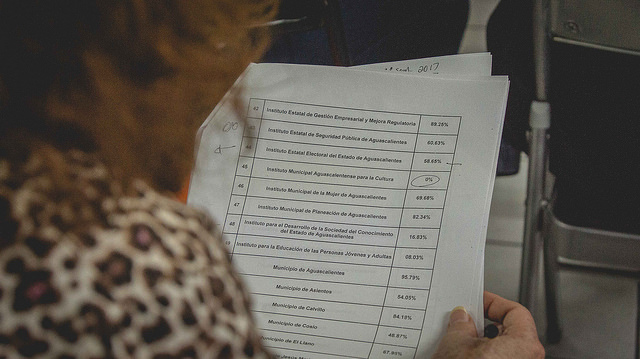 2017
42 Instituto Estatal de Gestión Empresarial y Mejora Regulatoria 89.25%
43 Instituto Estatal de Seguridad Pública de Aguascalientes 60.63%
44 Instituto Estatal Electoral del Estado de Aguascalientes 58.65%
45 Instituto Municipal Aguascalentense para la Cultura 0%
46 Instituto Municipal de la Mujer de Aguascalientes 69.68%
47 Instituto Municipal de Planeación de Aguascalientes 82.34%
48 Instituto para el Desarrollo de la Sociedad del Conocimiento
del Estado de Aguascalientes 16.83%
Instituto para la Educación de las Personas Jóvenes y Adultas 08.03%
Municipio de Aguascalientes 95.79%
Municipio de Asientos 54.05%
Municipio de Calvillo 84.10%
Municipio de Cosío 46.87%
Municipio de El Llano 67.95%